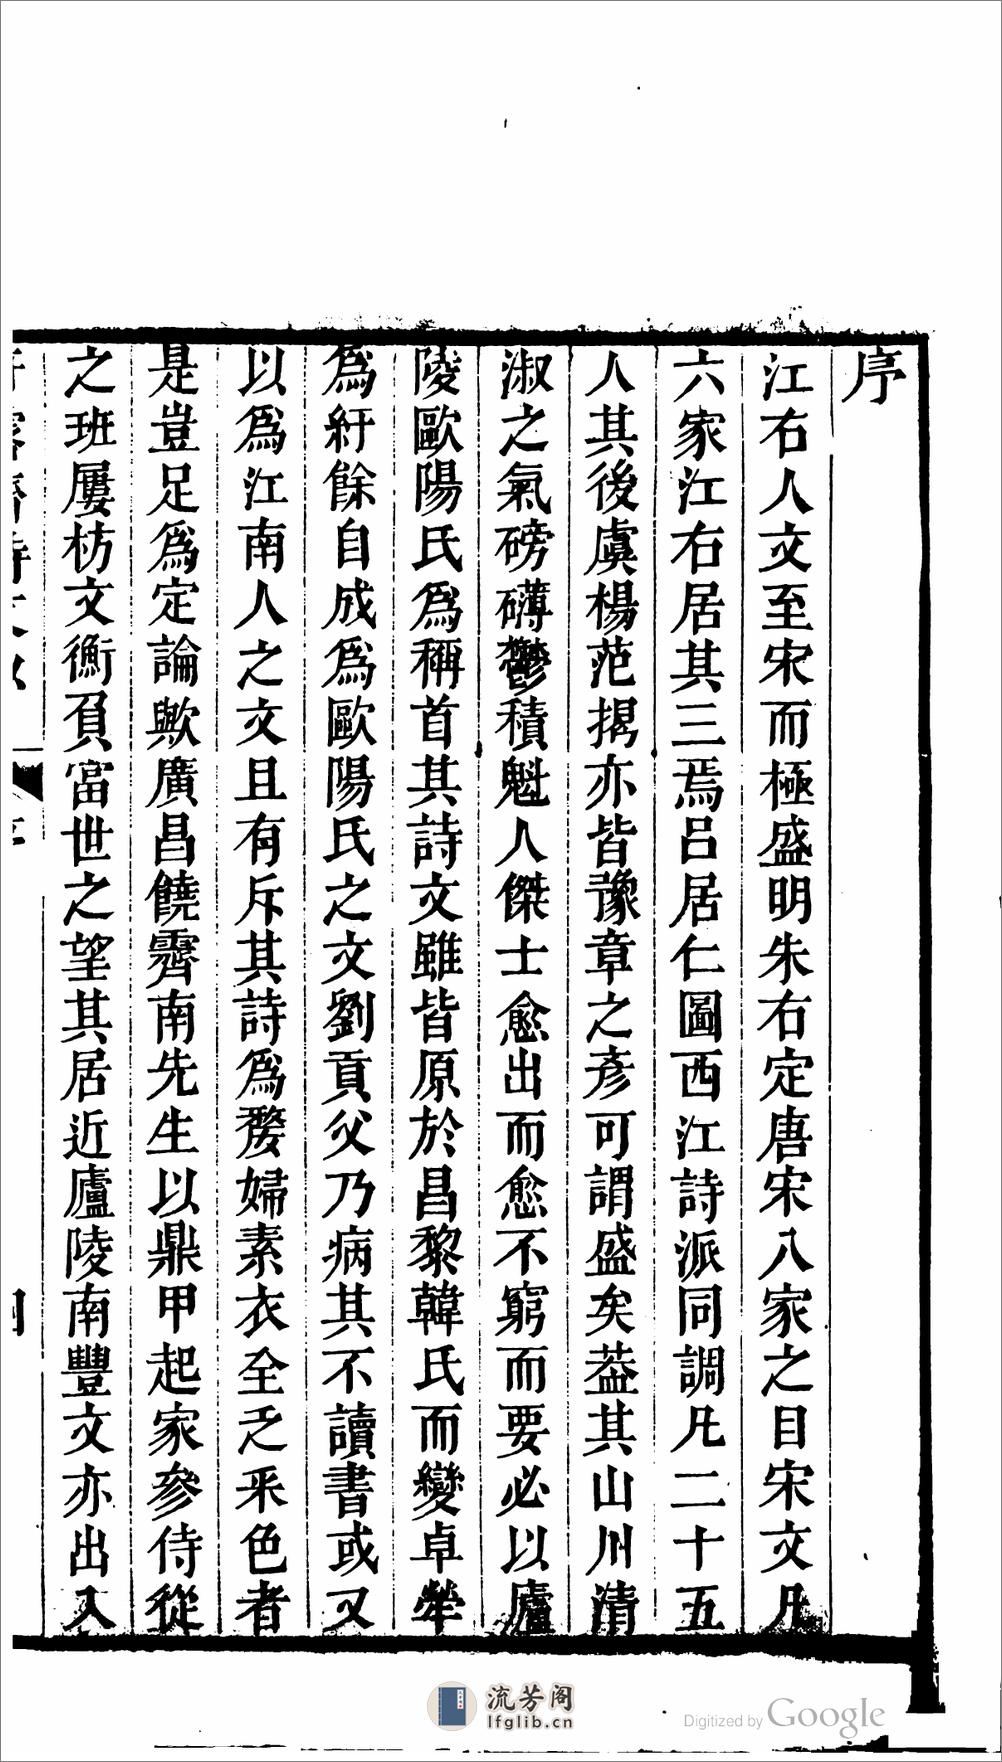 序
江右人文至宋而極盛明朱右定唐宋八家之目宋文凡
六家江右居其三焉呂居仁圖西江詩派同調凡二十五
人其後虞楊范揭亦皆豫章之彥可謂盛矣葢其山川清
淑之氣磅礴鬱積魁人傑士愈出而愈不窮而要必以廬
陵歐陽氏爲稱首其詩文雖皆原於昌黎韓氏而變卓犖
爲紆餘自成爲歐陽氏之文劉貢父乃病其不讀書或又
以爲江南人之文且有斥其詩爲嫠婦素衣全乏采色者
是豈足爲定論歟廣昌饒霽南先生以鼎甲起家參侍從
之班屢枋文衡負當世之望其居近廬陵南豐文亦出入
流芳阁
lfglib.cn
Digitized by Google